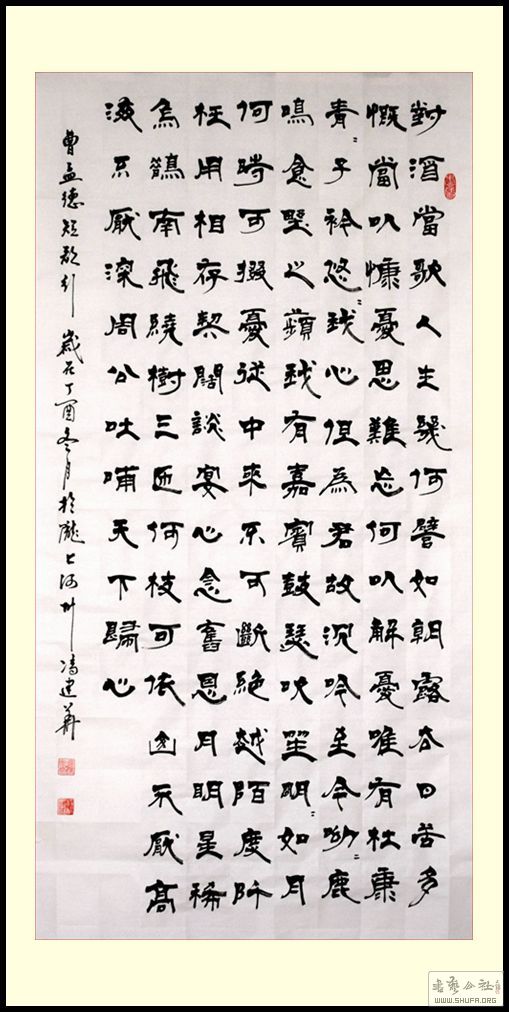 對酒當歌人生幾何譬如朝露去日苦多
慨當以慷憂思難忘何以解憂唯有杜康
青〻子衿悠〻我心但為君故沉吟至今呦〻鹿
鳴食野之蘋我有嘉賓鼓瑟吹笙明〻如月
何時可掇憂從中來不可斷絕越陌度阡
枉用相存契闊談宴心念舊恩月明星稀
烏鵲南飛繞樹三匝何枝可依山不厭高
海不厭深周公吐哺天下歸心
曹孟德短歌行 歲在丁酉冬月於隴上河州 馮建華
書藝公社
WWW.SHUFA.ORG